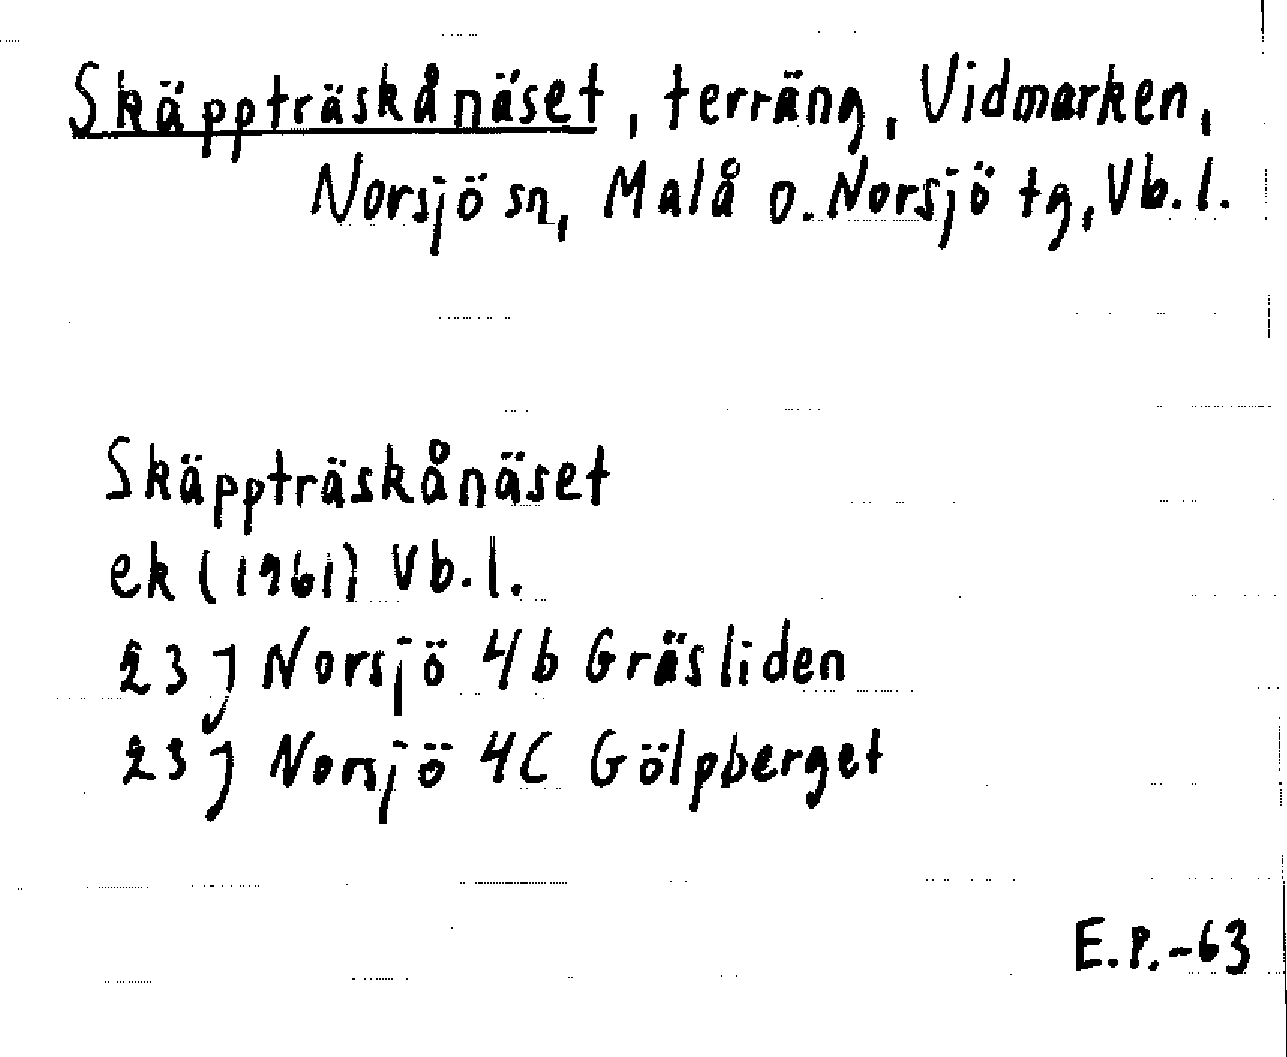 Skäppträskånäset, terräng, Vidmarken,
Norsjö sn, Malå o. Norsjö tg, Vb. l.
Skäppträskånäset
ek (1961) Vb. l.
23 J Norsjö 4b Gräsliden
23 J Norsjö 4C Gölpberget
E.P.-63